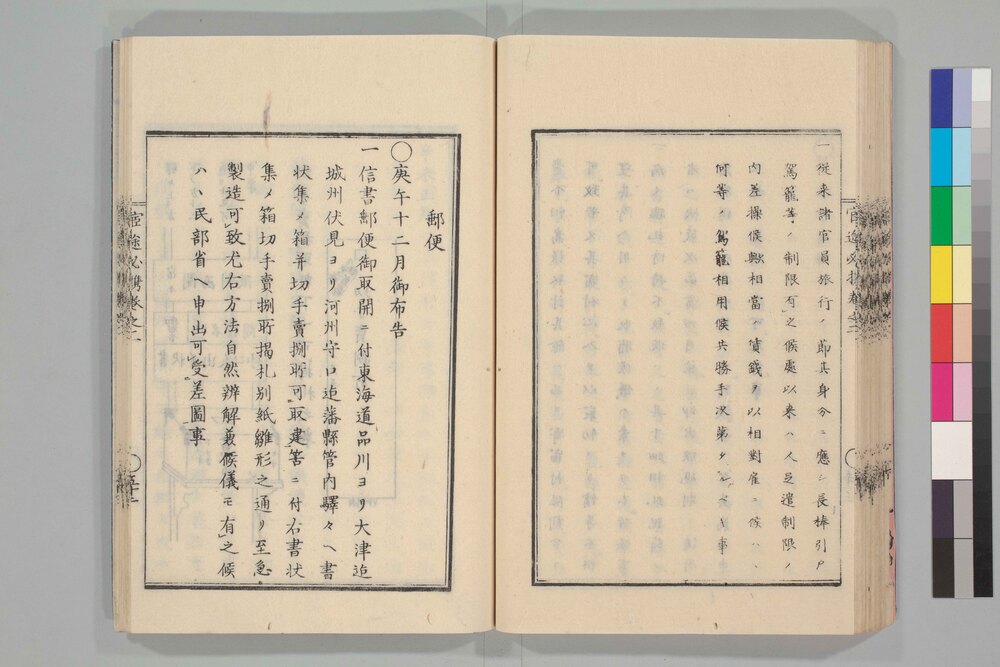 一従来諸官員旅行ノ節其身分ニ應シ長棒引戸
駕籠等ノ制限有之候處以来ハ人足遣制限ノ
内差操候歟相當ノ賃錢ヲ以相對雇ニ候ハヽ
何等ノ駕籠相用候共勝手次第タルヘキ事
郵便
○庚午十二月御布告
一信書郵便御取開ニ付東海道品川ヨリ大津迠
城州伏見ヨリ河州守口迠藩縣管内驛々ヘ書
状集メ箱并切手賣捌所可取建筈ニ付右書状
集メ箱切手賣捌所揭札別紙雛形之通リ至急
製造可致尤右方法自然辨解兼候儀モ有之候
ハヽ民部省ヘ申出可受差圖事